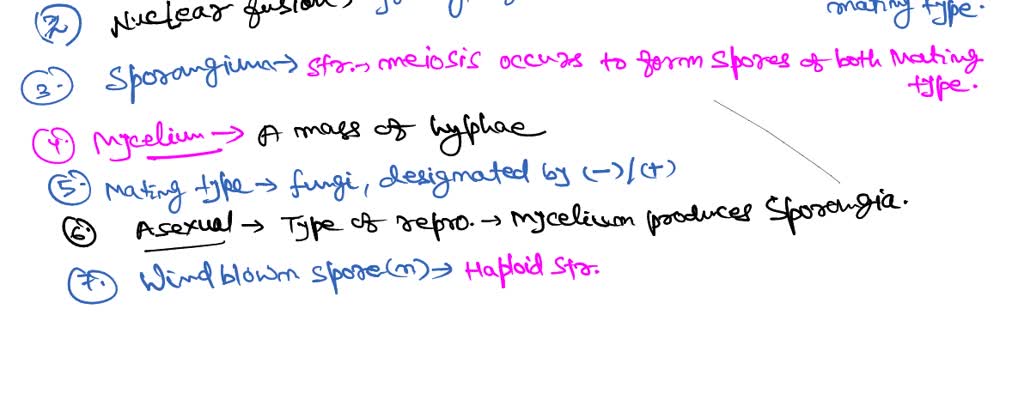 2) Nuclear fusion,
mating type.
3. Sporangium → Str. → meiosis occurs to form spores of both Mating
type.
4. Mycelium → A mass of hyphae
5. Mating type → fungi, designated by (-)/(+)
6. Asexual → Type of repro. → Mycelium produces Sporangia.
7. Wind blown spore(n) → Haploid Str.